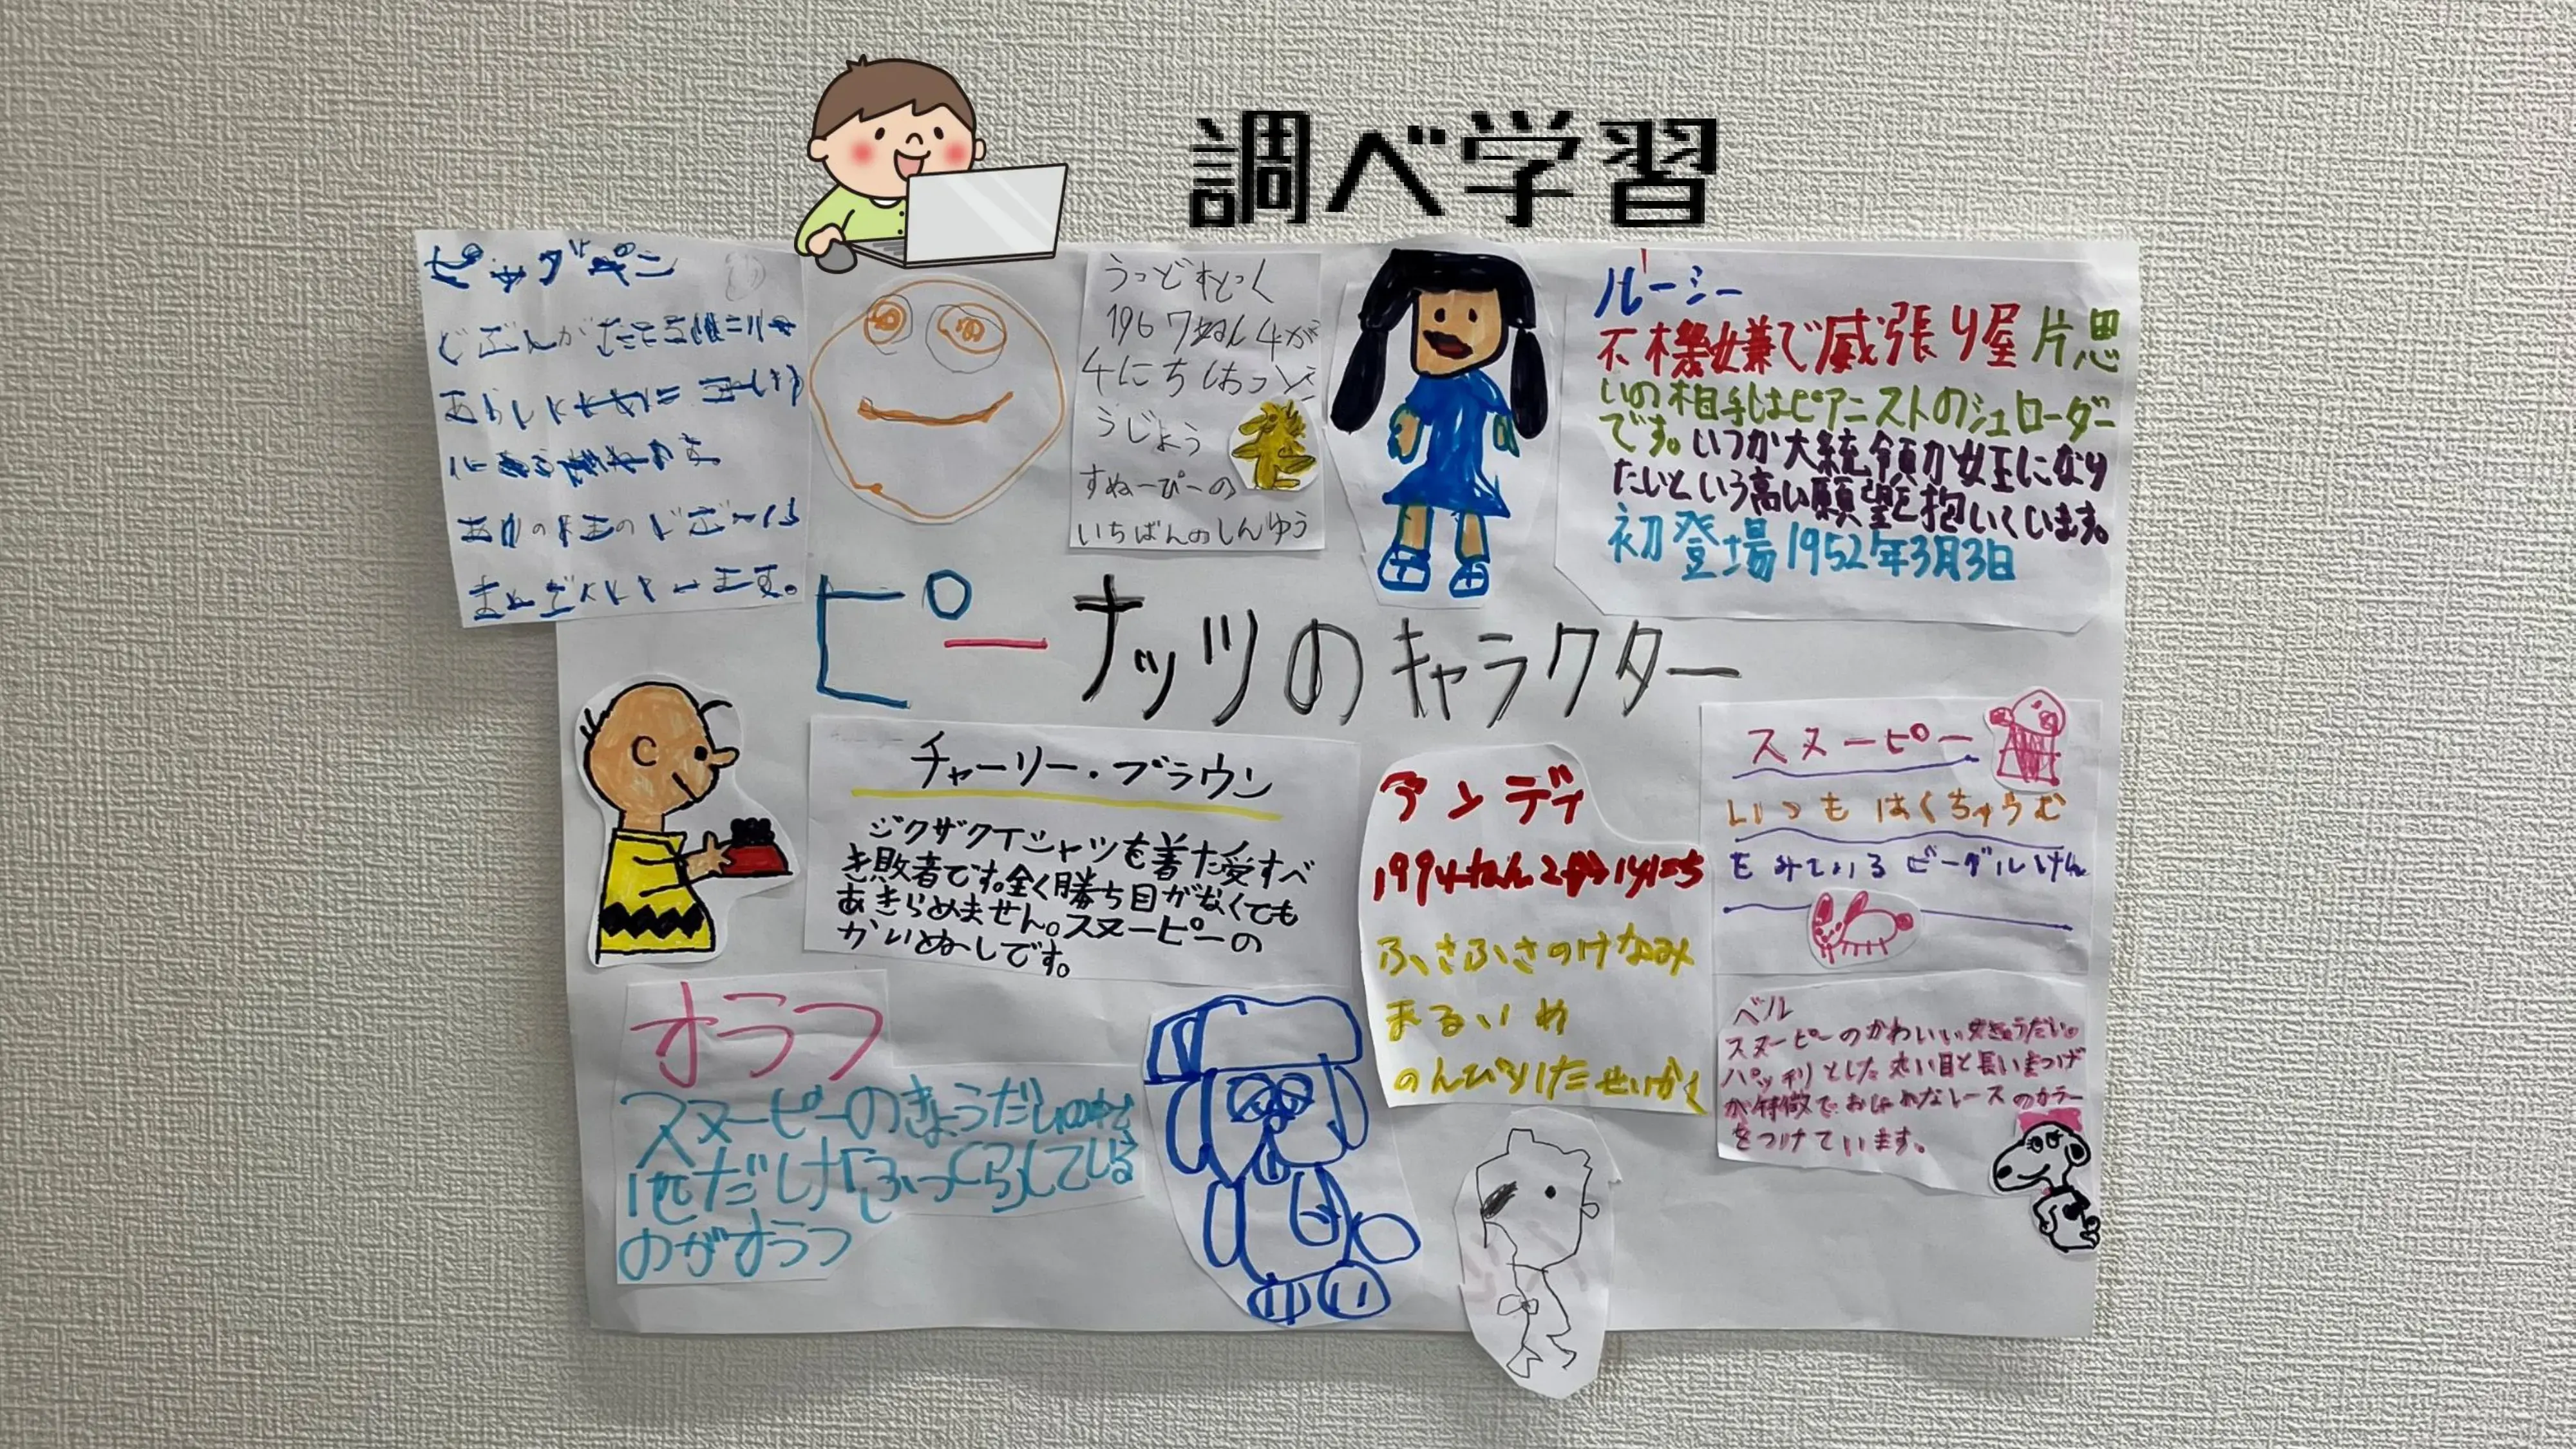 調べ学習
ピッグペン
うっどすとっく
1967ねん4が
4にちはつと
うじょう
すぬーぴーの
いちばんのしんゆう
ルーシー
不機嫌で威張り屋 片思
いの相手はピアニストのシュローダー
です。いつか大統領か女王になり
たいという高い願望を抱いています。
初登場1952年3月3日
ピーナッツのキャラクター
チャーリー・ブラウン
ジグザグTシャツを着た愛すべ
き敗者です。全く勝ち目がなくても
あきらめません。スヌーピーの
かいぬしです。
アンディ
1994ねん2がつ14にち
ふさふさのけなみ
まるいめ
のんびりしたせいかく
スヌーピー
いつもはくちゅうむ
をみているビーグルけん
ベル
スヌーピーのかわいい女きょうだい。
パッチリとした丸い目と長いまつげ
が特徴で、おしゃれなレースのカラー
をつけています。
オラフ
スヌーピーのきょうだいの
他だしけ「ふっくら」している
のがオラフ